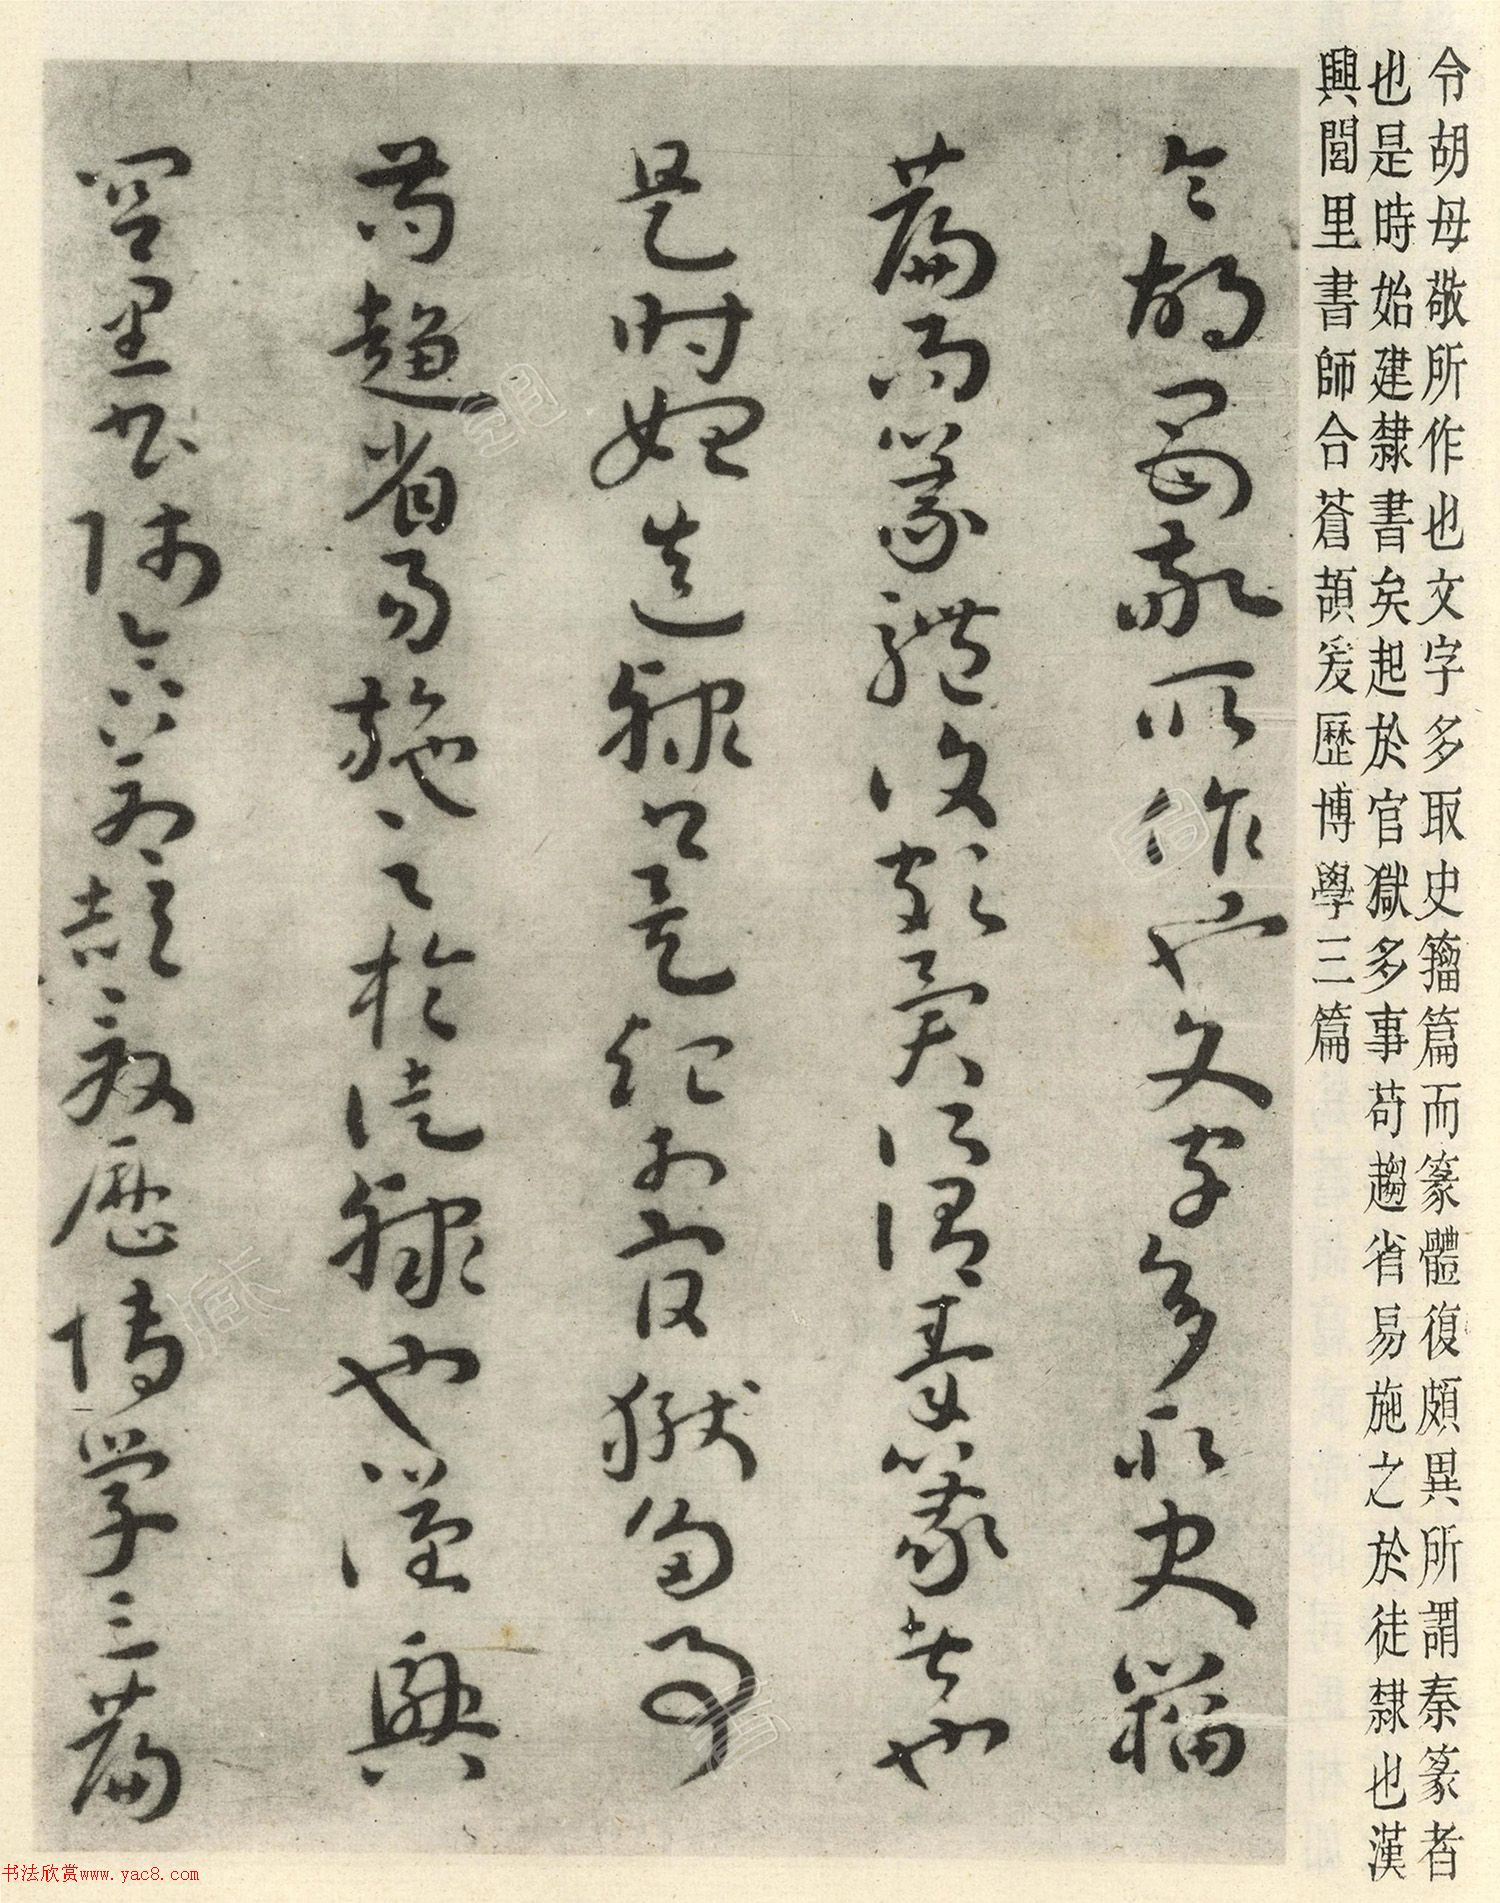 令胡母敬所作也文字多取史籀篇而篆體復頗異所謂秦篆者
也是時始建隸書矣起於官獄多事苟趨省易施之於徒隸也漢
興閭里書師合蒼頡爰歷博學三篇
令胡母敬所作也文字多取史籀
篇而篆體復頗異所謂秦篆者也
是時始建隸書矣起於官獄多事
苟趨省易施之於徒隸也漢興
閭里書師合蒼頡爰歷博學三篇
书法欣赏www.yac8.com